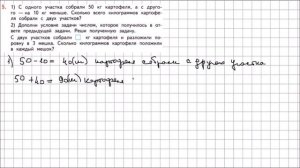 5. 1) С одного участка собрали 50 кг картофеля, а с друго-
го — на 10 кг меньше. Сколько всего килограммов картофе-
ля собрали с двух участков?
2) Дополни условие задачи числом, которое получилось в от-
вете предыдущей задачи. Реши полученную задачу.
С двух участков собрали кг картофеля и разложили по-
ровну в 3 мешка. Сколько килограммов картофеля положили
в каждый мешок?
1) 50-10= 40(кг) картофеля собрали с другого участка
50+40=90(кг) картофеля